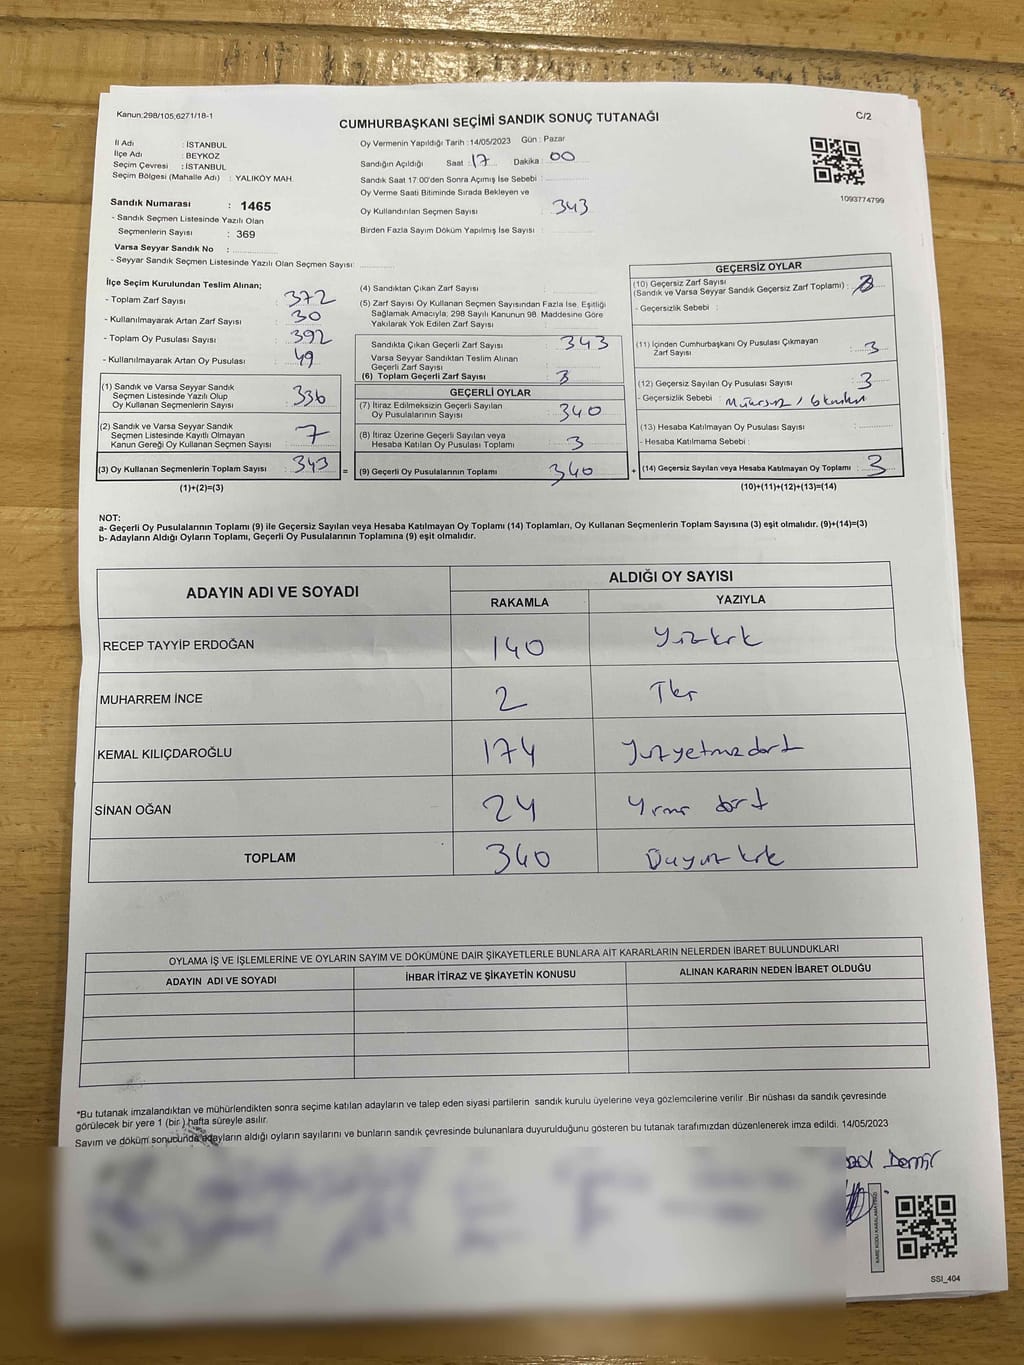 Kanun;298/105;6271/18-1
CUMHURBAŞKANI SEÇİMİ SANDIK SONUÇ TUTANAĞI
C/2
İl Adı : İSTANBUL
İlçe Adı : BEYKOZ
Seçim Çevresi : İSTANBUL
Seçim Bölgesi (Mahalle Adı) : YALIKÖY MAH.
Sandık Numarası : 1465
- Sandık Seçmen Listesinde Yazılı Olan
Seçmenlerin Sayısı : 369
Varsa Seyyar Sandık No :
- Seyyar Sandık Seçmen Listesinde Yazılı Olan Seçmen Sayısı:
Oy Vermenin Yapıldığı Tarih :14/05/2023 Gün : Pazar
Sandığın Açıldığı Saat : 17 Dakika : 00
Sandık Saat 17:00'den Sonra Açımış İse Sebebi :
Oy Verme Saati Bitiminde Sırada Bekleyen ve
Oy Kullandırılan Seçmen Sayısı : 343
Birden Fazla Sayım Döküm Yapılmış İse Sayısı :
1093774799
İlçe Seçim Kurulundan Teslim Alınan;
- Toplam Zarf Sayısı : 372
- Kullanılmayarak Artan Zarf Sayısı : 30
- Toplam Oy Pusulası Sayısı : 392
- Kullanılmayarak Artan Oy Pusulası : 49
(1) Sandık ve Varsa Seyyar Sandık
Seçmen Listesinde Yazılı Olup
Oy Kullanan Seçmenlerin Sayısı : 336
(2) Sandık ve Varsa Seyyar Sandık
Seçmen Listesinde Kayıtlı Olmayan
Kanun Gereği Oy Kullanan Seçmen Sayısı : 7
(3) Oy Kullanan Seçmenlerin Toplam Sayısı : 343
(1)+(2)=(3)
(4) Sandıktan Çıkan Zarf Sayısı :
(5) Zarf Sayısı Oy Kullanan Seçmen Sayısından Fazla İse, Eşitliği
Sağlamak Amacıyla, 298 Sayılı Kanunun 98. Maddesine Göre
Yakılarak Yok Edilen Zarf Sayısı :
Sandıkta Çıkan Geçerli Zarf Sayısı : 343
Varsa Seyyar Sandıktan Teslim Alınan
Geçerli Zarf Sayısı :
(6) Toplam Geçerli Zarf Sayısı : 3
GEÇERLİ OYLAR
(7) İtiraz Edilmeksizin Geçerli Sayılan
Oy Pusulalarının Sayısı : 340
(8) İtiraz Üzerine Geçerli Sayılan veya
Hesaba Katılan Oy Pusulası Toplamı : 3
= (9) Geçerli Oy Pusulalarının Toplamı : 340
GEÇERSİZ OYLAR
(10) Geçersiz Zarf Sayısı
(Sandık ve Varsa Seyyar Sandık Geçersiz Zarf Toplamı) :
- Geçersizlik Sebebi :
(11) İçinden Cumhurbaşkanı Oy Pusulası Çıkmayan
Zarf Sayısı : 3
(12) Geçersiz Sayılan Oy Pusulası Sayısı : 3
- Geçersizlik Sebebi :
(13) Hesaba Katılmayan Oy Pusulası Sayısı :
- Hesaba Katılmama Sebebi :
+ (14) Geçersiz Sayılan veya Hesaba Katılmayan Oy Toplamı : 3
(10)+(11)+(12)+(13)=(14)
NOT:
a- Geçerli Oy Pusulalarının Toplamı (9) ile Geçersiz Sayılan veya Hesaba Katılmayan Oy Toplamı (14) Toplamları, Oy Kullanan Seçmenlerin Toplam Sayısına (3) eşit olmalıdır. (9)+(14)=(3)
b- Adayların Aldığı Oyların Toplamı, Geçerli Oy Pusulalarının Toplamına (9) eşit olmalıdır.
ADAYIN ADI VE SOYADI
ALDIĞI OY SAYISI
RAKAMLA YAZIYLA
RECEP TAYYİP ERDOĞAN 140 Yüzkırk
MUHARREM İNCE 2 İki
KEMAL KILIÇDAROĞLU 174 Yüzyetmişdört
SİNAN OĞAN 24 Yirmi dört
TOPLAM 340 Üçyüz kırk
OYLAMA İŞ VE İŞLEMLERİNE VE OYLARIN SAYIM VE DÖKÜMÜNE DAİR ŞİKAYETLERLE BUNLARA AİT KARARLARIN NELERDEN İBARET BULUNDUKLARI
ADAYIN ADI VE SOYADI İHBAR İTİRAZ VE ŞİKAYETİN KONUSU ALINAN KARARIN NEDEN İBARET OLDUĞU
*Bu tutanak imzalandıktan ve mühürlendikten sonra seçime katılan adayların ve talep eden siyasi partilerin sandık kurulu üyelerine veya gözlemcilerine verilir .Bir nüshası da sandık çevresinde
görülecek bir yere 1 (bir ) hafta süreyle asılır.
Sayım ve döküm sonucunda adayların aldığı oyların sayılarını ve bunların sandık çevresinde bulunanlara duyurulduğunu gösteren bu tutanak tarafımızdan düzenlenerek imza edildi. 14/05/2023
Demir
SSI_404